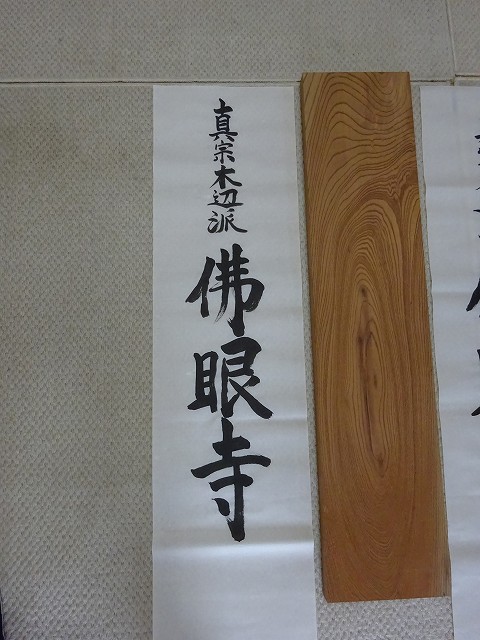 真宗木辺派
佛眼寺